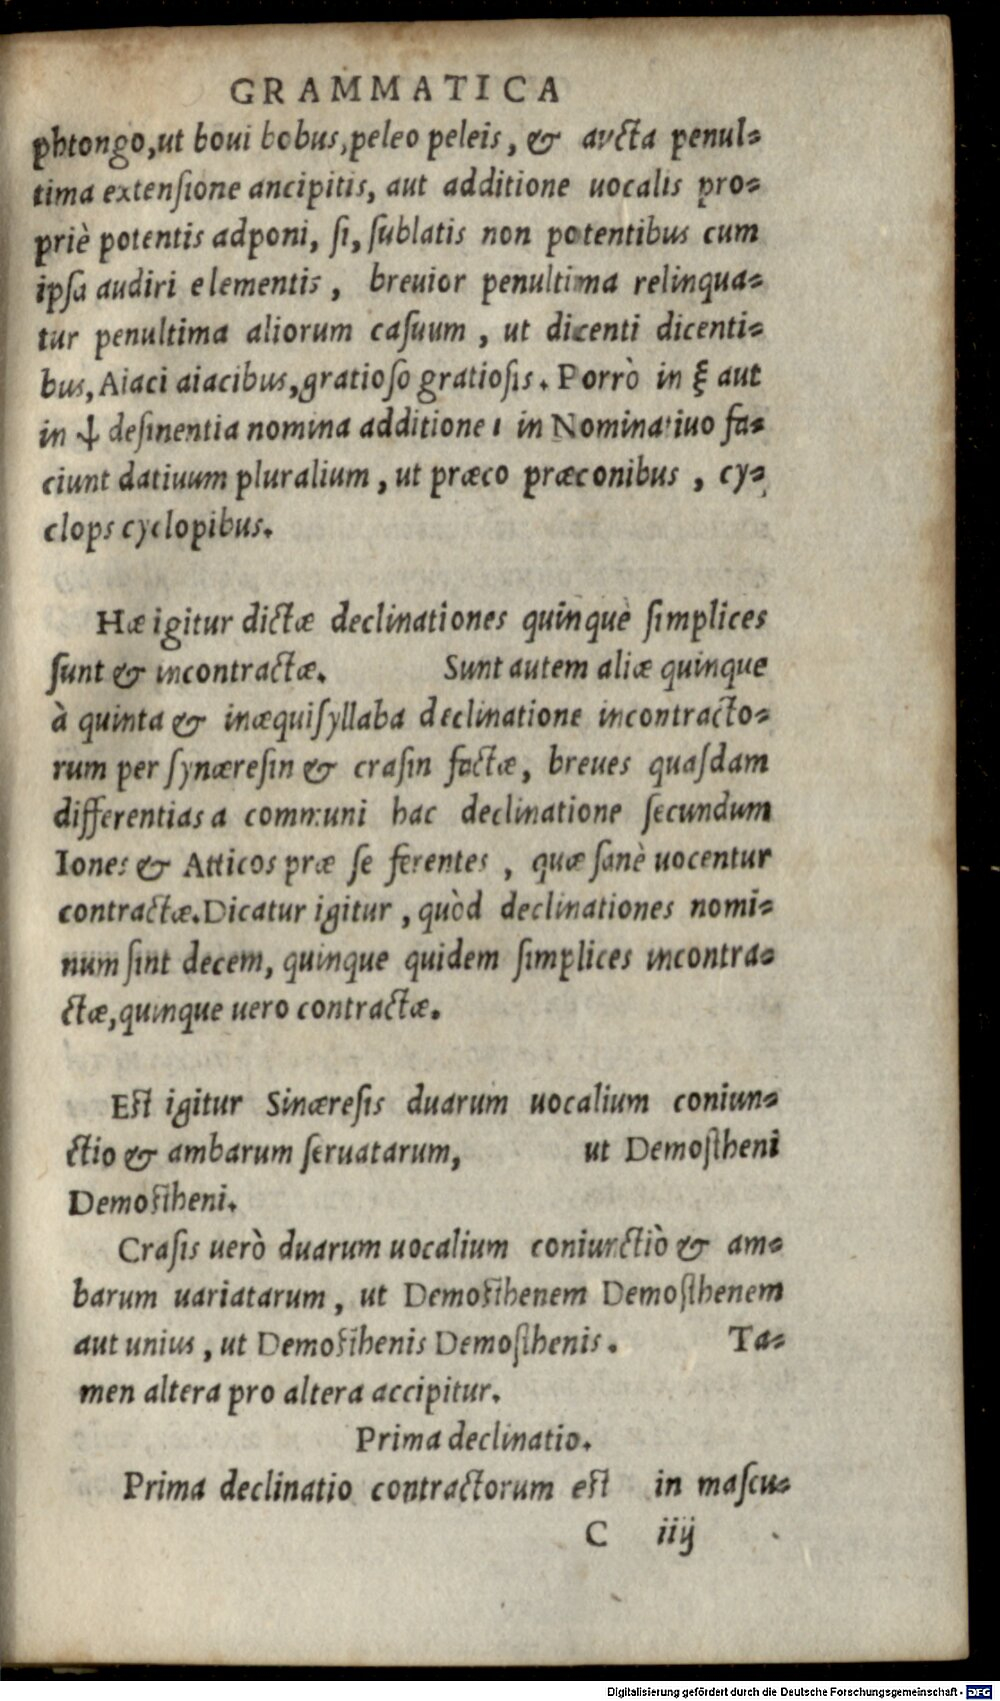 GRAMMATICA
phtongo, ut boui bobus, peleo peleis, & aucta penul-
tima extensione ancipitis, aut additione uocalis pro-
priè potentis adponi, si, sublatis non potentibus cum
ipsa audiri elementis, breuior penultima relinqua-
tur penultima aliorum casuum, ut dicenti dicenti-
bus, Aiaci aiacibus, gratioso gratiosis. Porrò in ξ aut
in ψ desinentia nomina additione ι in Nominatiuo fa-
ciunt datiuum pluralium, ut præco præconibus, cy-
clops cyclopibus.
Hæ igitur dictæ declinationes quinquè simplices
sunt & incontractæ. Sunt autem aliæ quinque
à quinta & inæquisyllaba declinatione incontracto-
rum per synæresin & crasin factæ, breues quasdam
differentias a communi hac declinatione secundum
Iones & Atticos præ se ferentes, quæ sanè uocentur
contractæ. Dicatur igitur, quòd declinationes nomi-
num sint decem, quinque quidem simplices incontra-
ctæ, quinque uero contractæ.
Est igitur Sinæresis duarum uocalium coniun-
ctio & ambarum seruatarum, ut Demostheni
Demostheni.
Crasis uerò duarum uocalium coniunctiò & am-
barum uariatarum, ut Demosthenem Demosthenem
aut unius, ut Demosthenis Demosthenis. Ta-
men altera pro altera accipitur.
Prima declinatio.
Prima declinatio contractorum est in mascu-
C iiij
Digitalisierung gefördert durch die Deutsche Forschungsgemeinschaft - DFG